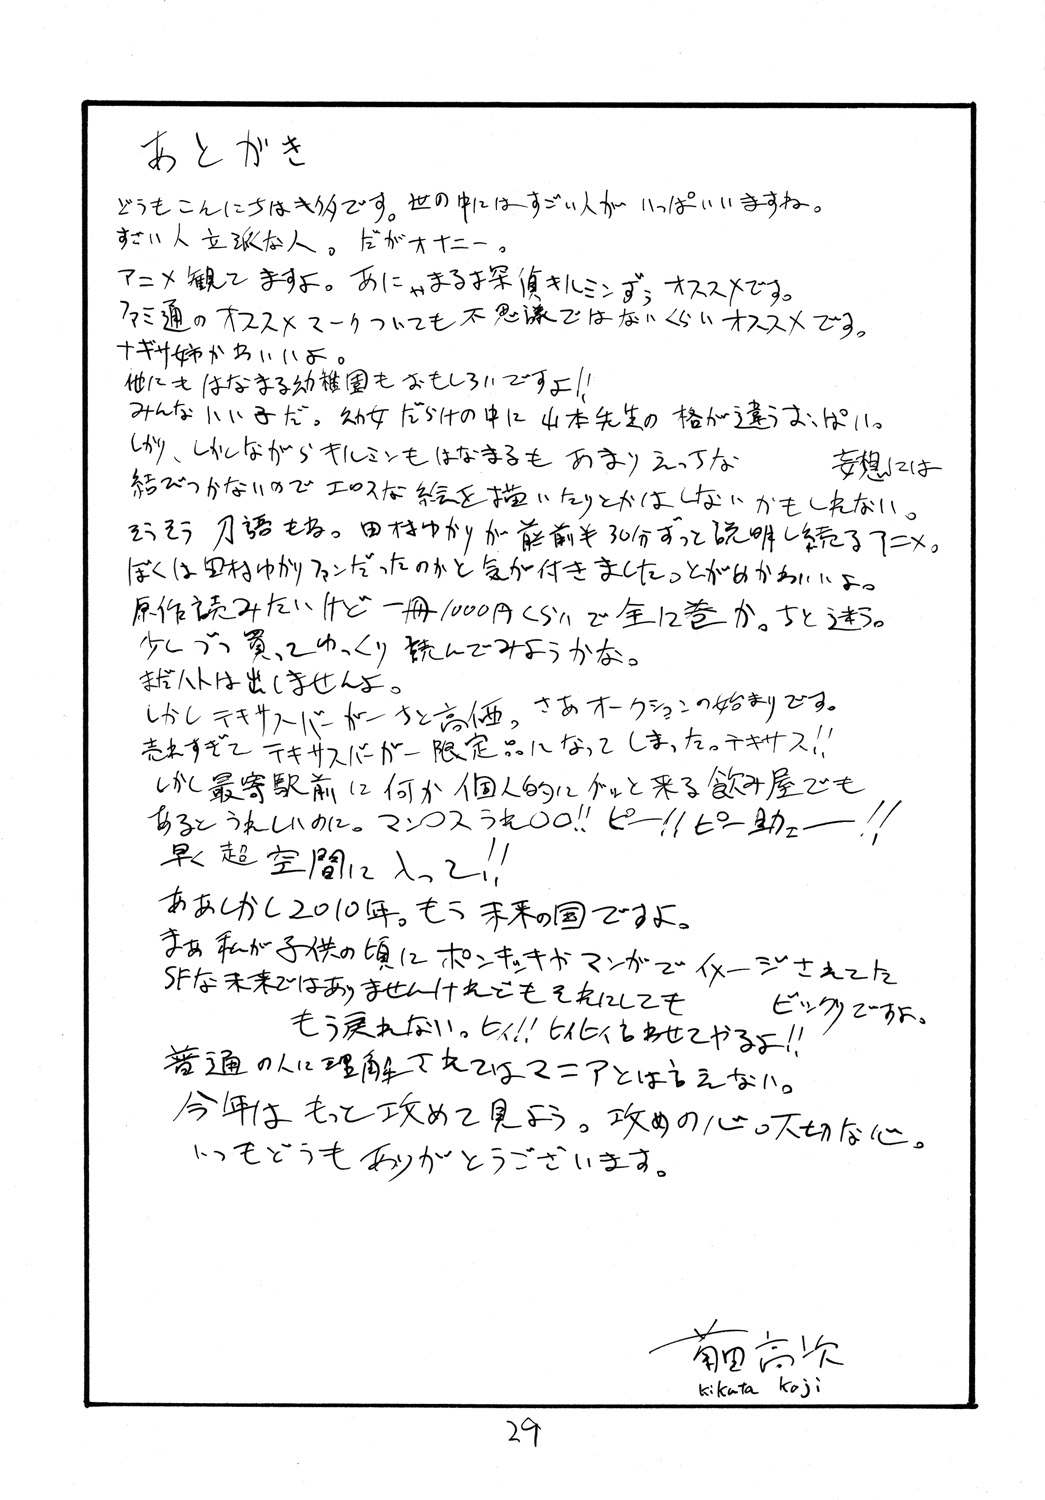 あとがき
どうもこんにちはキクタです。世の中にはすごい人がいっぱいいますね。
すごい人立派な人。だがオナニー。
アニメ観てますよ。あにゃまる探偵キルミンずぅオススメです。
ファミ通のオススメマークついても不思議ではないくらいオススメです。
ナギサ姉かわいいよ。
他にもはなまる幼稚園もおもしろいですよ!!
みんないい子だ。幼女だらけの中に山本先生の格が違うおっぱい。
しかり、しかしながらキルミンもはなまるもあまりえっちな 妄想には
結びつかないのでエロスな絵を描いたりとかはしないかもしれない。
そうそう刀語もね。田村ゆかりが前半30分ずっと説明し続るアニメ。
ぼくは田村ゆかりファンだったのかと気が付きました。とがめかわいいよ。
原作読みたいけど一冊1000円くらいで全12巻か。ちと迷う。
少しづつ買ってゆっくり読んでみようかな。
まだハトは出しませんよ。
しかしテキサスバーガーちと高価。さあオークションの始まりです。
売れすぎてテキサスバーガー限定品になってしまった。テキサス!!
しかし最寄駅前に何か個人的にグッと来る飲み屋でも
あるとうれしいのに。マン〇スうれ〇〇!!ピー!!ピー助ェー!!
早く超空間に入って!!
ああしかし2010年。もう未来の国ですよ。
まぁ私が子供の頃にポンキッキやマンガでイメージされてた
SFな未来ではありませんけれどもそれにしても ビックリですよ。
もう戻れない。ヒィ!!ヒィヒィ言わせてやるよ!!
普通の人に理解されてはマニアとは言えない。
今年はもっと攻めて見よう。攻めの心。大切な心。
いつもどうもありがとうございます。
菊田高次
Kikuta Koji
29